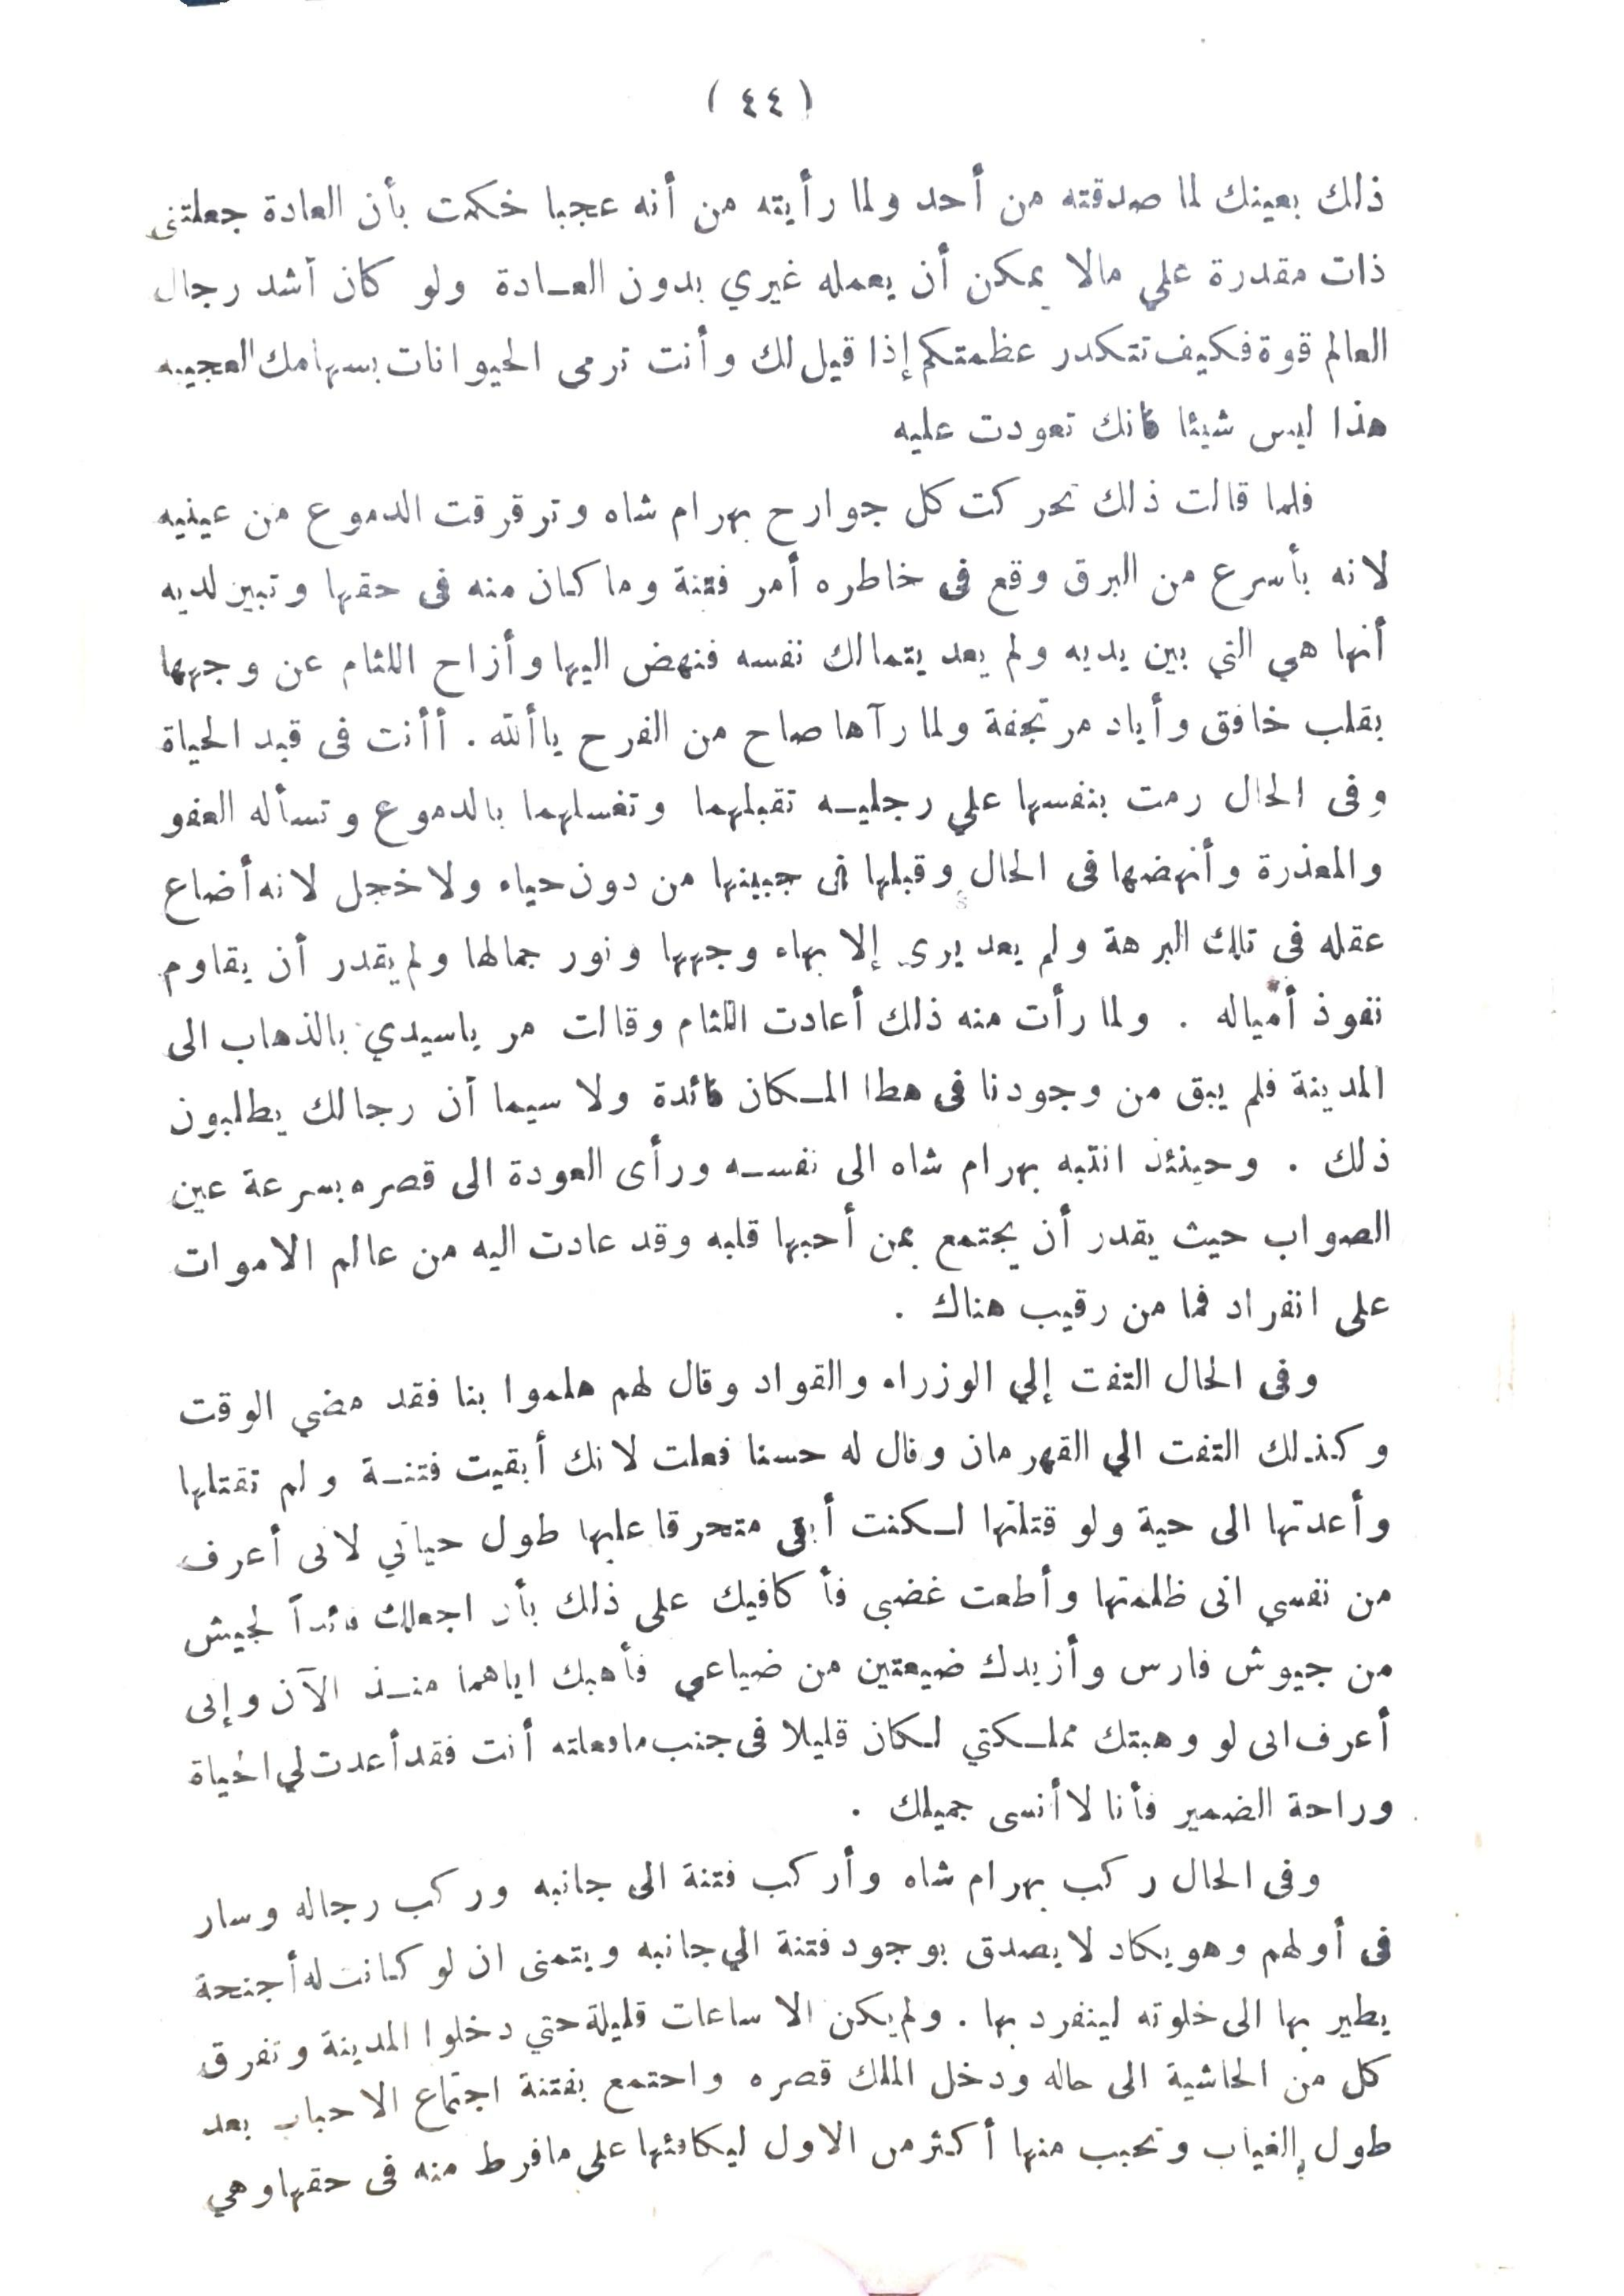 ( ٤٤ )
ذلك بعينك لما صدقته من أحد ولما رأيته من أنه عجبا خكمت بأن العادة جعلتنى
ذات مقدرة علي مالا يمكن أن يعمله غيري بدون العادة ولو كان أشد رجال
العالم قوة فكيف تتكدر عظمتكم إذا قيل لك وأنت ترمى الحيوانات بسهامك العجيبه
هذا ليس شيئا فانك تعودت عليه
فلما قالت ذلك تحركت كل جوارح بهرام شاه وترقرقت الدموع من عينيه
لانه بأسرع من البرق وقع فى خاطره أمر فتنة وما كان منه فى حقها وتبين لديه
أنها هي التي بين يديه ولم يعد يتمالك نفسه فنهض اليها وأزاح اللثام عن وجهها
بقلب خافق وأياد مرتجفة ولما رآها صاح من الفرح ياألله . أأنت فى قيد الحياة
وفى الحال رمت بنفسها علي رجليه تقبلهما وتغسلهما بالدموع وتسأله العفو
والمعذرة وأنهضها فى الحال وقبلها فى جبينها من دون حياء ولا خجل لانه أضاع
عقله فى تلك البرهة ولم يعد يرى إلا بهاء وجهها ونور جمالها ولم يقدر أن يقاوم
نفوذ أمياله . ولما رأت منه ذلك أعادت اللثام وقالت مر ياسيدي بالذهاب الى
المدينة فلم يبق من وجودنا فى هطا المكان فائدة ولا سيما أن رجالك يطلبون
ذلك . وحينئذ انتبه بهرام شاه الى نفسه ورأى العودة الى قصره بسرعة عين
الصواب حيث يقدر أن يجتمع بمن أحبها قلبه وقد عادت اليه من عالم الاموات
على انفراد فما من رقيب هناك .
وفى الحال التفت إلي الوزراء والقواد وقال لهم هلموا بنا فقد مضي الوقت
وكذلك التفت الي القهرمان وقال له حسنا فعلت لانك أبقيت فتنة ولم تقتلها
وأعدتها الى حية ولو قتلتها لكنت أبقى متحرقا عليها طول حياتي لانى أعرف
من نفسي انى ظلمتها وأطعت غضبي فأكافيك على ذلك بأن اجعلك قائداً لجيش
من جيوش فارس وأزيدك ضيعتين من ضياعي فأهبك اياهما منذ الآن وإنى
أعرف انى لو وهبتك مملكتي لكان قليلا فى جنب مافعلته أنت فقد أعدت لي الحياة
وراحة الضمير فأنا لا أنسى جميلك .
وفى الحال ركب بهرام شاه وأركب فتنة الى جانبه وركب رجاله وسار
فى أولهم وهو يكاد لا يصدق بوجود فتنة الي جانبه ويتمنى ان لو كانت له أجنحة
يطير بها الى خلوته لينفرد بها . ولم يكن الا ساعات قليلة حتي دخلوا المدينة وتفرق
كل من الحاشية الى حاله ودخل الملك قصره واجتمع بفتنة اجتماع الاحباب بعد
طول الغياب وتحبب منها أكثر من الاول ليكافئها على مافرط منه فى حقها وهي